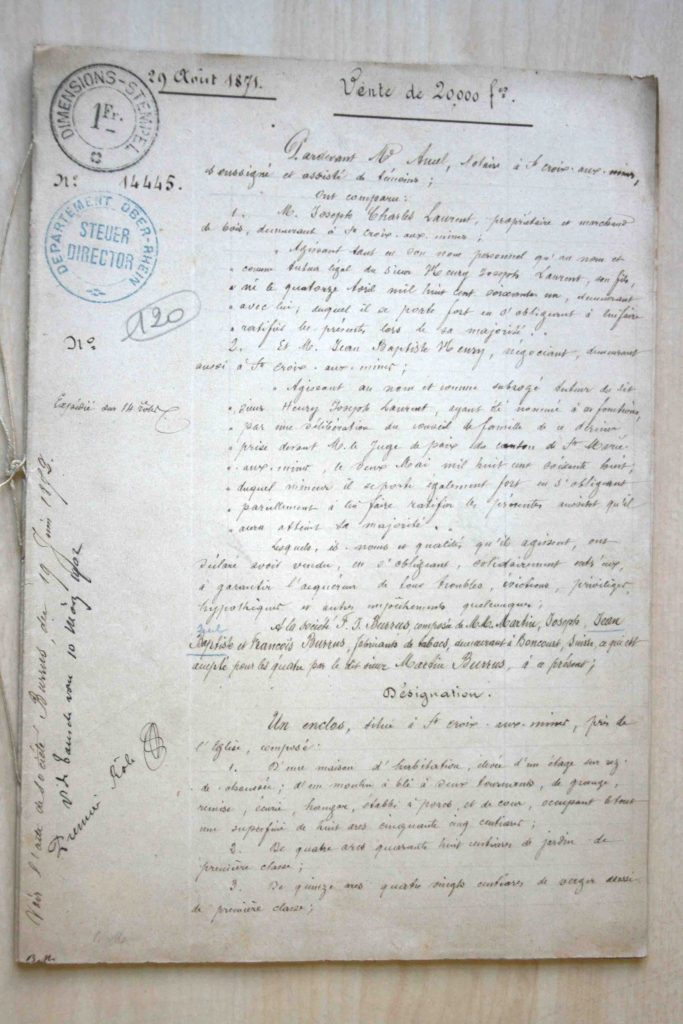 29 Août 1871.
Vente de 20,000 frs.
DIMENSIONS-STEMPEL
1 Fr.
No 14445.
DEPARTEMENT OBER-RHEIN
STEUER
DIRECTOR
120
No
Expédié sur 14 rôles
Voir l'acte de société Burrus du 19 Juin 1873.
Vide vom 10 März 1902
Premier Rôle
Pardevant Me Ancel, Notaire à Ste croix-aux-mines,
soussigné et assisté de témoins;
Ont comparu:
1. M. Joseph Charles Laurent, propriétaire et marchand
de bois, demeurant à Ste croix-aux-mines;
" Agissant tant en son nom personnel qu'au nom et
" comme tuteur légal du Sieur Henry Joseph Laurent, son fils,
" né le quatorze Avril mil huit cent soixante un, demeurant
" avec lui, duquel il se porte fort en s'obligeant à lui faire
" ratifier les présentes lors de sa majorité. "
2. Et M. Jean Baptiste Henry, négociant, demeurant
aussi à Ste croix-aux-mines;
" Agissant au nom et comme subrogé tuteur du dit
" sieur Henry Joseph Laurent, ayant été nommé à ces fonctions,
" par une délibération du conseil de famille de ce dernier
" prise devant M. le Juge de paix du canton de Ste Marie
" aux-mines, le deux Mai mil huit cent soixante huit,
" duquel mineur il se porte également fort en s'obligeant
" pareillement à lui faire ratifier les présentes aussitôt qu'il
" aura atteint sa majorité. "
Lesquels, ès-noms et qualités qu'ils agissent, ont
déclaré avoir vendu, en s'obligeant, solidairement entr'eux,
à garantir l'acquéreur de tous troubles, évictions, privilèges,
hypothèques et autres empêchements quelconques;
A la société F. J. Burrus, composée de M.M. Martin, Joseph, Jean
Baptiste et François Burrus, fabricants de tabacs, demeurant à Boncourt, Suisse, ce qui est
accepté pour les quatre par le dit sieur Martin Burrus, à ce présent;
Désignation.
Un enclos, situé à Ste croix-aux-mines, près de
l'Eglise, composé:
1. D'une maison d'habitation, élevée d'un étage sur rez-
de-chaussée; d'un moulin à blé à deux tournants, de grange,
remise, écurie, hangar, étables à porcs, et de cour, occupant le tout
une superficie de huit ares cinquante cinq centiares;
2. De quatre ares quarante huit centiares de jardin de
première classe;
3. De quinze ares quatre vingts centiares de verger aussi
de première classe;